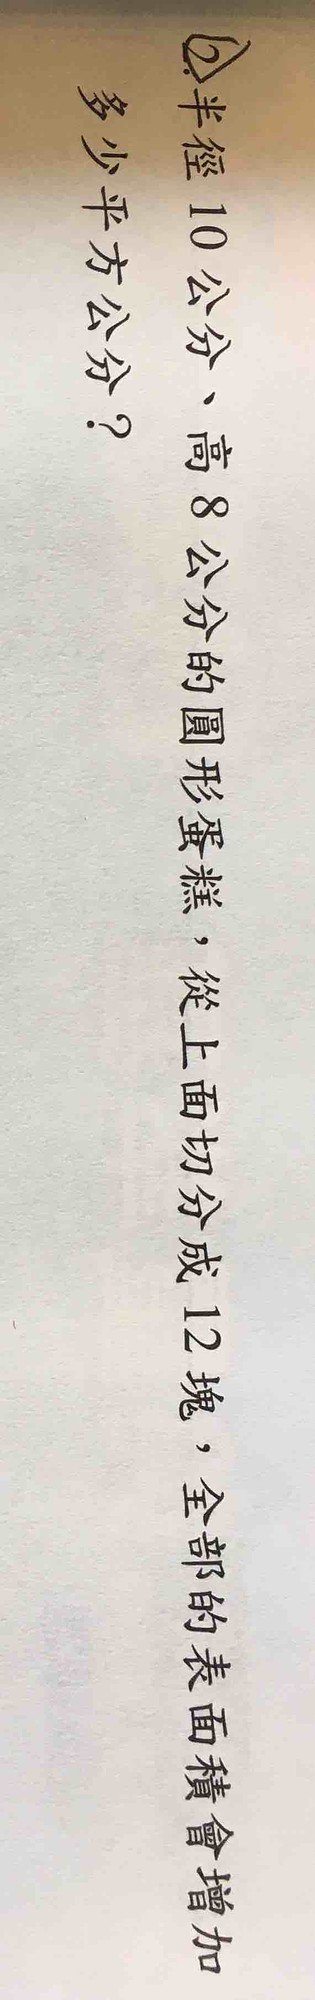 2.半徑10公分、高8公分的圓形蛋糕，從上面切分成12塊，全部的表面積會增加
多少平方公分？